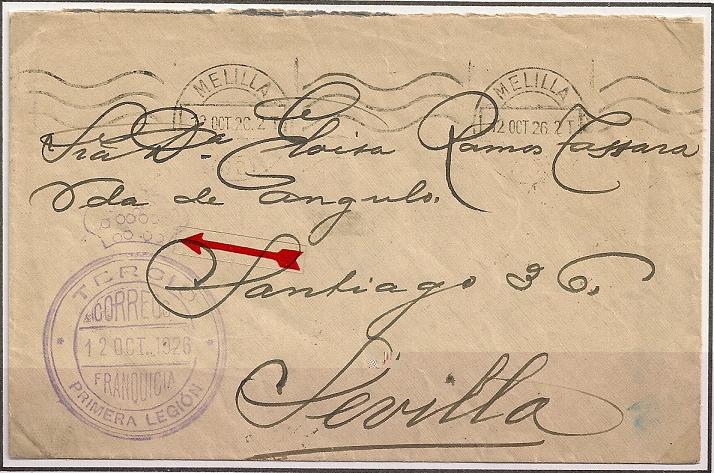 MELILLA
12 OCT. 26. 2 T
MELILLA
12 OCT. 26. 2 T.
Sra Da. Eloisa Ramos Tassara
Vda de Cangulo.
Santiago 36.
Sevilla
TERCIO
CORREOS
12 OCT. 1926
FRANQUICIA
PRIMERA LEGIÓN